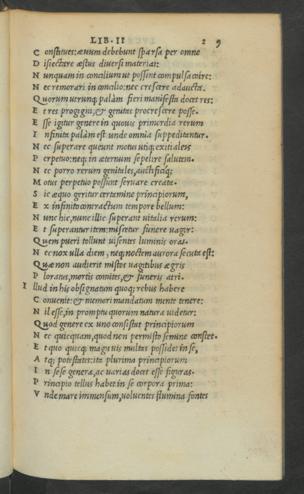 LIB. II 29
C onstitues: æuum debebunt sparsa per omne
D isiectare æstus diuersi materiai:
N unquam in concilium ut possint compulsa coire:
N ec remorari in concilio: nec crescere adaucta.
Q uorum utrunq; palàm fieri manifesta docet res:
E t res progigni, & genitas procrescere posse.
E sse igitur genere in quouis primordia rerum
I nfinita palàm est: unde omnia suppeditentur.
N ec superare queunt motus utiq; exitiales
P erpetuo: neq; in æternum sepelire salutem.
N ec porro rerum genitales, auctificiq;
M otus perpetuo possunt seruare creata.
S ic æquo geritur certamine principiorum,
E x infinito contractum tempore bellum:
N unc hic, nunc illic superant uitalia rerum:
E t superantur item: miscetur funere uagor:
Q uem pueri tollunt uisentes luminis oras.
N ec nox ulla diem, neq; noctem aurora secuta est:
Q uæ non audierit mistos uagitibus ægris
P loratus, mortis comites, & funeris atri.
I llud in his obsignatum quoq; rebus habere
C onuenit: & memori mandatum mente tenere:
N il esse, in promptu quorum natura uidetur:
Q uod genere ex uno consistat principiorum
N ec quicquam, quod non permisto semine constet.
E t quo quicq; magis uis multas possidet in se,
A tq; potestates: ita plurima principiorum
I n sese genera, ac uarias docet esse figuras.
P rincipio tellus habet in se corpora prima:
V nde mare immensum, uoluentes flumina fontes